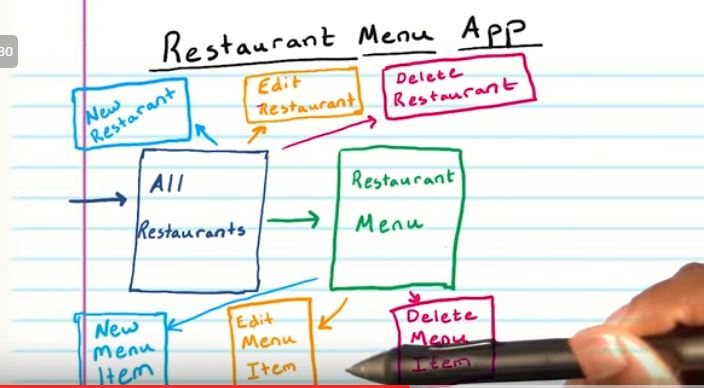 30
Restaurant Menu App
New
Restarant
Edit
Restaurant
Delete
Restaurant
All
Restaurants
Restaurant
Menu
New
Menu
Item
Edit
Menu
Item
Delete
Menu
Item